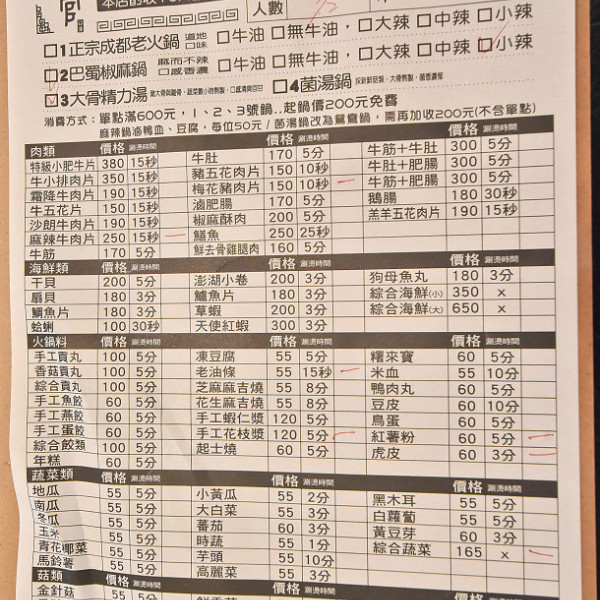 人數
□1正宗成都老火鍋 道地口味 □牛油 □無牛油，□大辣 □中辣 □小辣
□2巴蜀椒麻鍋 麻而不辣 口感香濃 □牛油 □無牛油，□大辣 □中辣 □小辣
□3大骨精力湯 □4菌湯鍋
消費方式：單點滿600元，1、2、3號鍋..起鍋價200元免費
麻辣鍋滷鴨血、豆腐，每位50元/菌湯鍋改為鴛鴦鍋，需再加收200元(不含單點)
肉類 價格 涮燙時間 價格 涮燙時間 價格 涮燙時間
特級小肥牛片 380 15秒 牛肚 170 5分 牛筋+牛肚 300 5分
牛小排肉片 350 15秒 豬五花肉片 150 10秒 牛肚+肥腸 300 5分
霜降牛肉片 190 15秒 梅花豬肉片 150 10秒 牛筋+肥腸 300 5分
牛五花片 150 15秒 滷肥腸 170 5分 鵝腸 180 30秒
沙朗牛肉片 190 15秒 椒麻酥肉 200 5分 羔羊五花肉片 190 15秒
麻辣牛肉片 250 15秒 鱔魚 250 25秒
牛筋 170 5分 鮮去骨雞腿肉 160 5分
海鮮類 價格 涮燙時間 價格 涮燙時間 價格 涮燙時間
干貝 200 5分 澎湖小卷 200 3分 狗母魚丸 180 3分
扇貝 180 3分 鱸魚片 180 3分 綜合海鮮(小) 350 x
鯛魚片 180 3分 草蝦 200 3分 綜合海鮮(大) 650 x
蛤蜊 100 30秒 天使紅蝦 300 3分
火鍋料 價格 涮燙時間 價格 涮燙時間 價格 涮燙時間
手工貢丸 100 5分 凍豆腐 55 5分 糯來寶 60 5分
香菇貢丸 100 5分 老油條 55 15秒 米血 55 10分
綜合貢丸 100 5分 芝麻麻吉燒 55 8分 鴨肉丸 60 5分
手工魚餃 60 5分 花生麻吉燒 55 8分 豆皮 60 10分
手工燕餃 60 5分 手工蝦仁漿 120 5分 鳥蛋 60 5分
手工蛋餃 60 5分 手工花枝漿 120 5分 紅薯粉 60 5分
綜合餃類 100 5分 起士燒 60 5分 虎皮 60 3分
年糕 60 5分
蔬菜類 價格 涮燙時間 價格 涮燙時間 價格 涮燙時間
地瓜 55 5分 小黃瓜 55 2分 黑木耳 55 5分
南瓜 55 5分 大白菜 55 3分 白蘿蔔 55 5分
冬瓜 55 5分 番茄 60 3分 黃豆芽 60 3分
玉米 55 5分 時蔬 55 1分 綜合蔬菜 165 x
青花椰菜 55 5分 芋頭 55 10分
馬鈴薯 55 5分 高麗菜 55 3分
菇類 價格 涮燙時間 價格 涮燙時間 價格 涮燙時間
金針菇